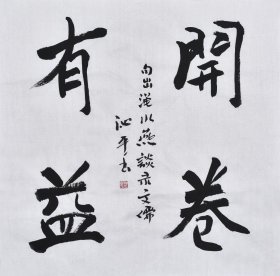 開卷
有益
句出澠水燕談录文儒
沁平书